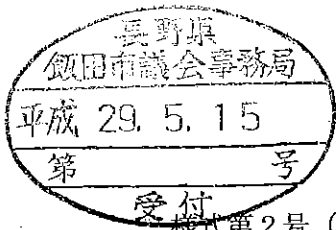 長野県
飯田市議会事務局
平成 29. 5. 15
第 号
受付
様式第2号（